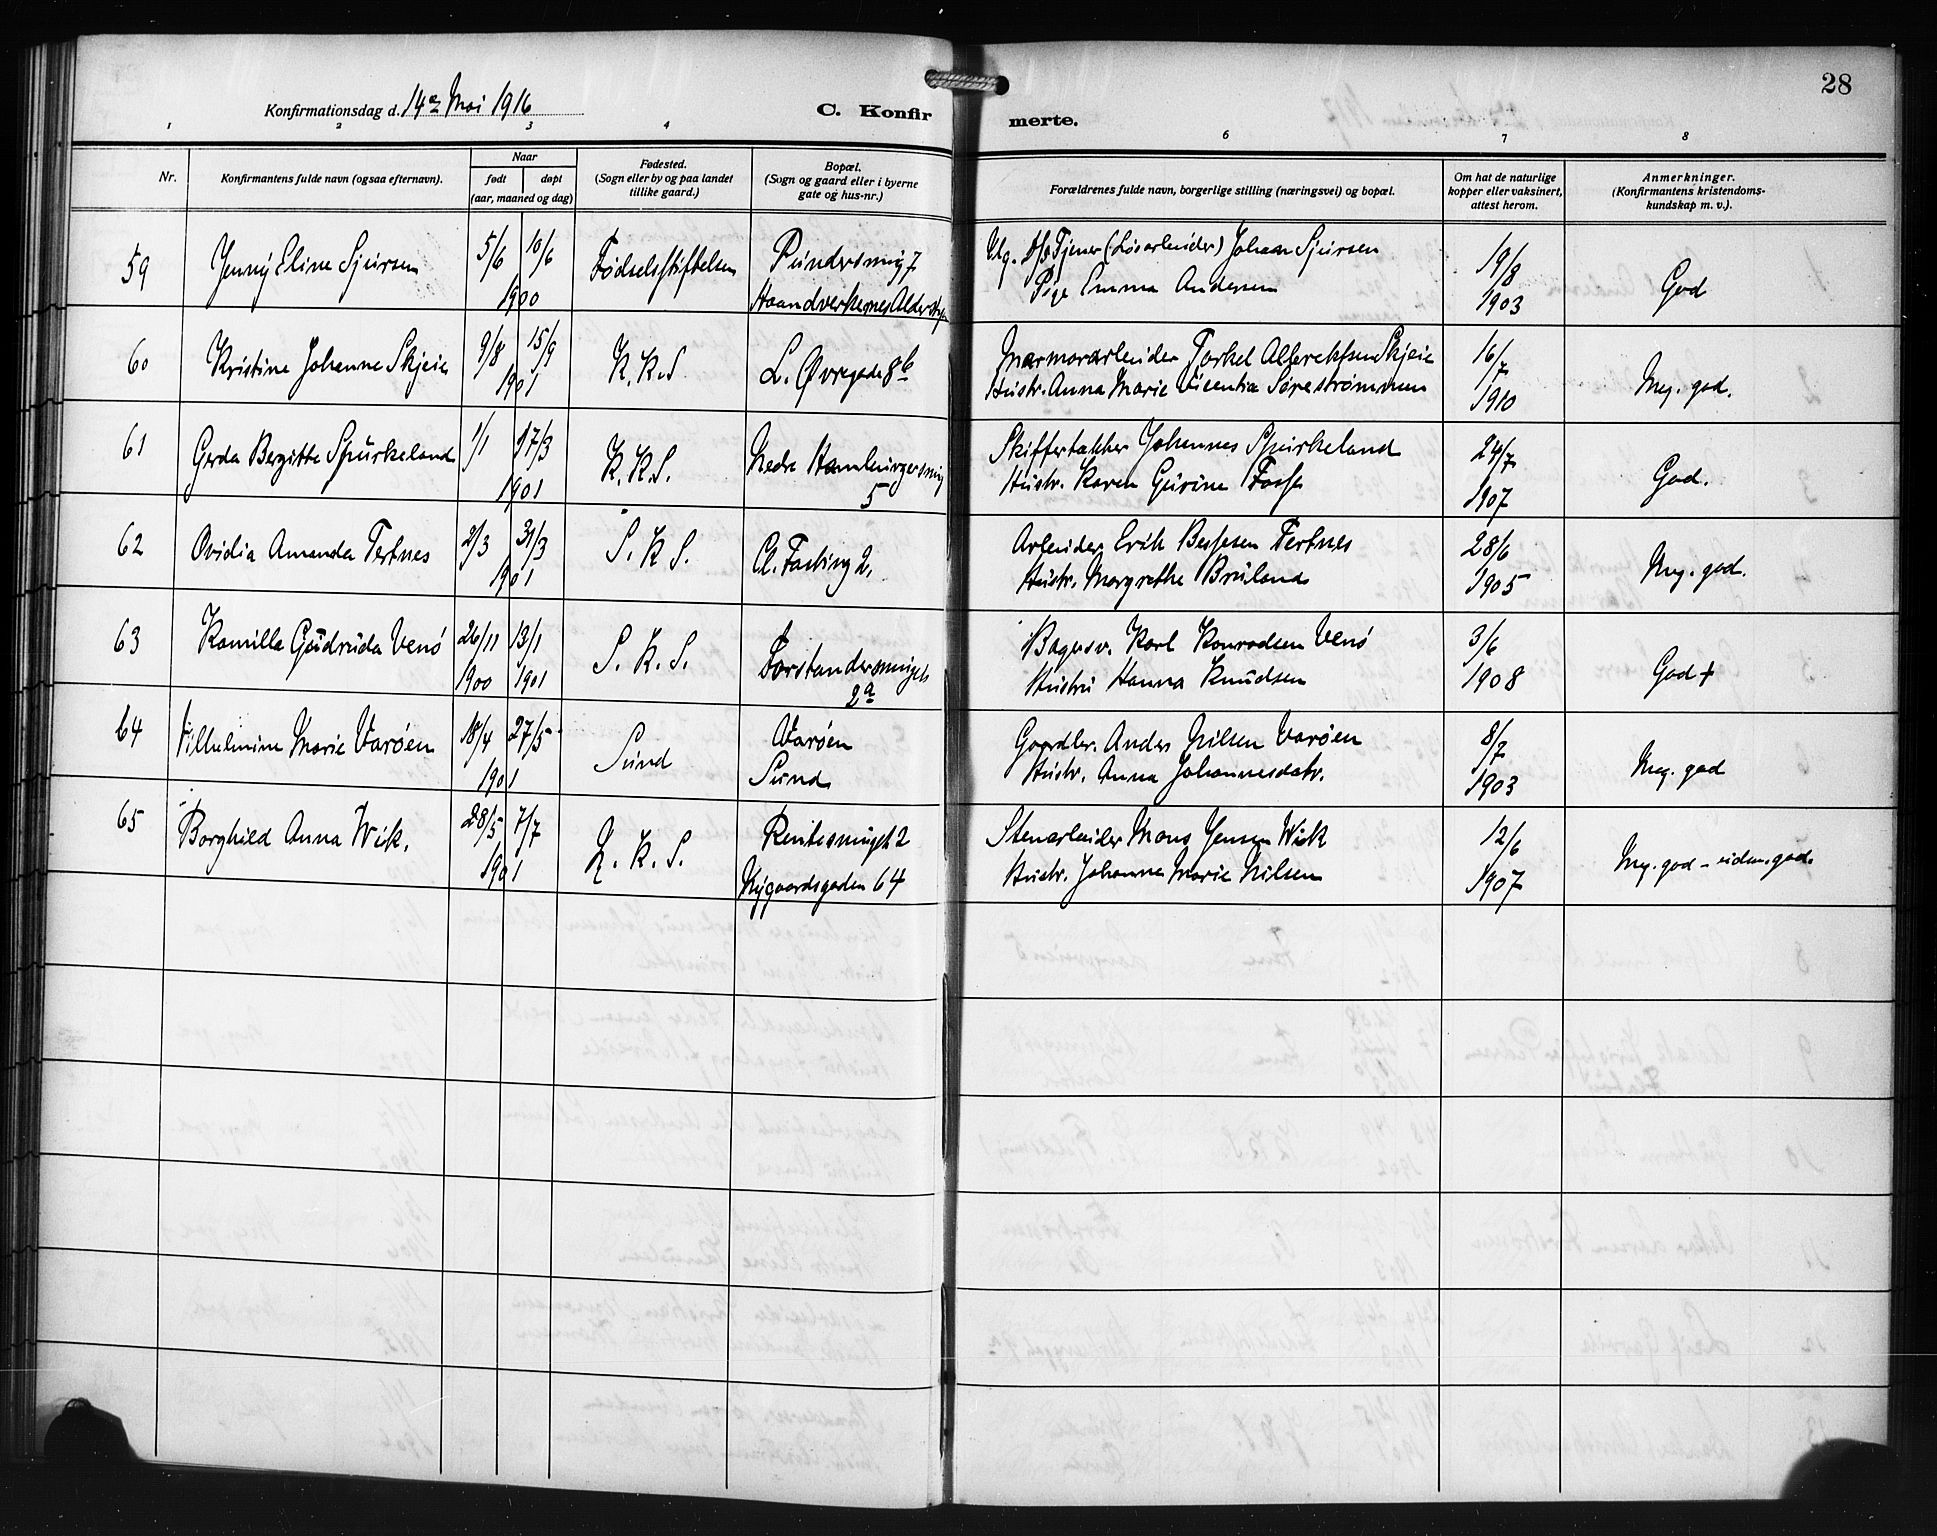 28
Konfirmationsdag d. 14de Mai 1916
C. Konfirmerte.
1 2 3 4 6 7 8
Nr.
Konfirmantens fulde navn (ogsaa efternavn).
Naar
født døpt
(aar, maaned og dag)
Fødested.
(Sogn eller by og paa landet
tillike gaard.)
Bopæl.
(Sogn og gaard eller i byerne
gate og hus-nr.)
Forældrenes fulde navn, borgerlige stilling (næringsvei) og bopæl.
Om hat de naturlige
kopper eller vaksinert,
attest herom.
Anmerkninger.
(Konfirmantens kristendoms-
kundskap m. v.).
59 Jenny Eline Sjursen 5/6 10/6 Fødselsstiftelsen Pundersmug 7 Tjener (Løsarbeider) Johan Sjursen 19/8 God
1900 Haandverkernes Pige Emma Andersen 1903
60 Kristine Johanne Skjeie 9/8 15/9 K.K.S L. Øvregade 8b Marmorarbeider Torkel Albrektsen Skjeie 16/7 Meg. god.
1901 Hustr. Anna Marie Vicentia Sørestrømmen 1910
61 Gerda Bergitte Spurkeland 1/1 17/3 K.K.S. Nedre Hamburgersmug Skiffertækker Johannes Spurkeland 24/7 God.
1901 5 Hustr. Karen Gurine Fosse 1907
62 Ovidia Amanda Tertnes 2/3 31/3 S. K S. Cl. Fasting 2. Arbeider Erik Tertnes 28/6 Meg. god.
1901 Hustr. Margrethe Bruland 1905
63 Kamilla Gudruda Venö 26/11 13/1 S. K. S. Forstandersmuget Bagersv. Karl Konradsen Venö 3/6 God +
1900 1901 2a Hustru Hanna Knudsen 1908
64 Vilhelmine Marie Varöen 18/4 27/5 Sund Varöen Gaardbr. Anders Nilsen Varöen 8/7 Meg. god
1901 Sund Hustr. Anna Johannesdatr. 1903
65 Borghild Anna Wik. 28/5 7/7 K. S. 2 Stenarbeider Mons Jensen Wik 12/6 Meg. god –
1901 Nygaardsgaden 64 Hustr. Johanne Marie Nilsen 1907